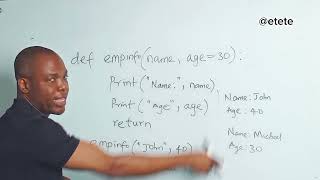 @etete
def empinfo(name, age=30):
print("Name:", name)
print("Age", age)
return
empinfo("John", 40)
Name: John
Age: 40
Name: Micheal
Age: 30